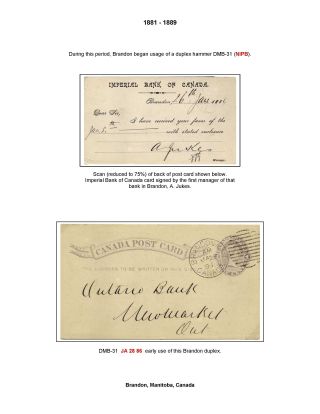 1881 - 1889
During this period, Brandon began usage of a duplex hammer DMB-31 (NIPB).
IMPERIAL BANK OF CANADA.
Brandon, 26th Jany 1886
Dear Sir,
I have received your favor of the
with stated enclosure
A. Jukes
Manager.
Scan (reduced to 75%) of back of post card shown below.
Imperial Bank of Canada card signed by the first manager of that
bank in Brandon, A. Jukes.
CANADA POST CARD
THE ADDRESS TO BE WRITTEN ON THIS SIDE
BRANDON
AM
JA 28
86
CANADA
Ontario Bank
Newmarket
Ont
DMB-31 JA 28 86 early use of this Brandon duplex.
Brandon, Manitoba, Canada